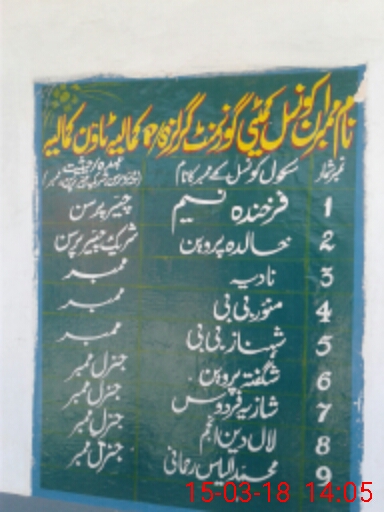 نام ممبران کونسل کمیٹی گورنمنٹ گرلز P/S کمالیہ ٹاؤن کمالیہ
نمبر شمار سکول کونسل کے ممبر کا نام عہدہ/حیثیت
1 فرخندہ نسیم چیئر پرسن
2 خالدہ پروین شریک چیئر پرسن
3 نادیہ ممبر
4 منور بی بی ممبر
5 شہناز بی بی ممبر
6 شگفتہ پروین جنرل ممبر
7 شازیہ فردوس جنرل ممبر
8 لال دین انجم جنرل ممبر
9 محمد الیاس رحمانی جنرل ممبر
15-03-18 14:05